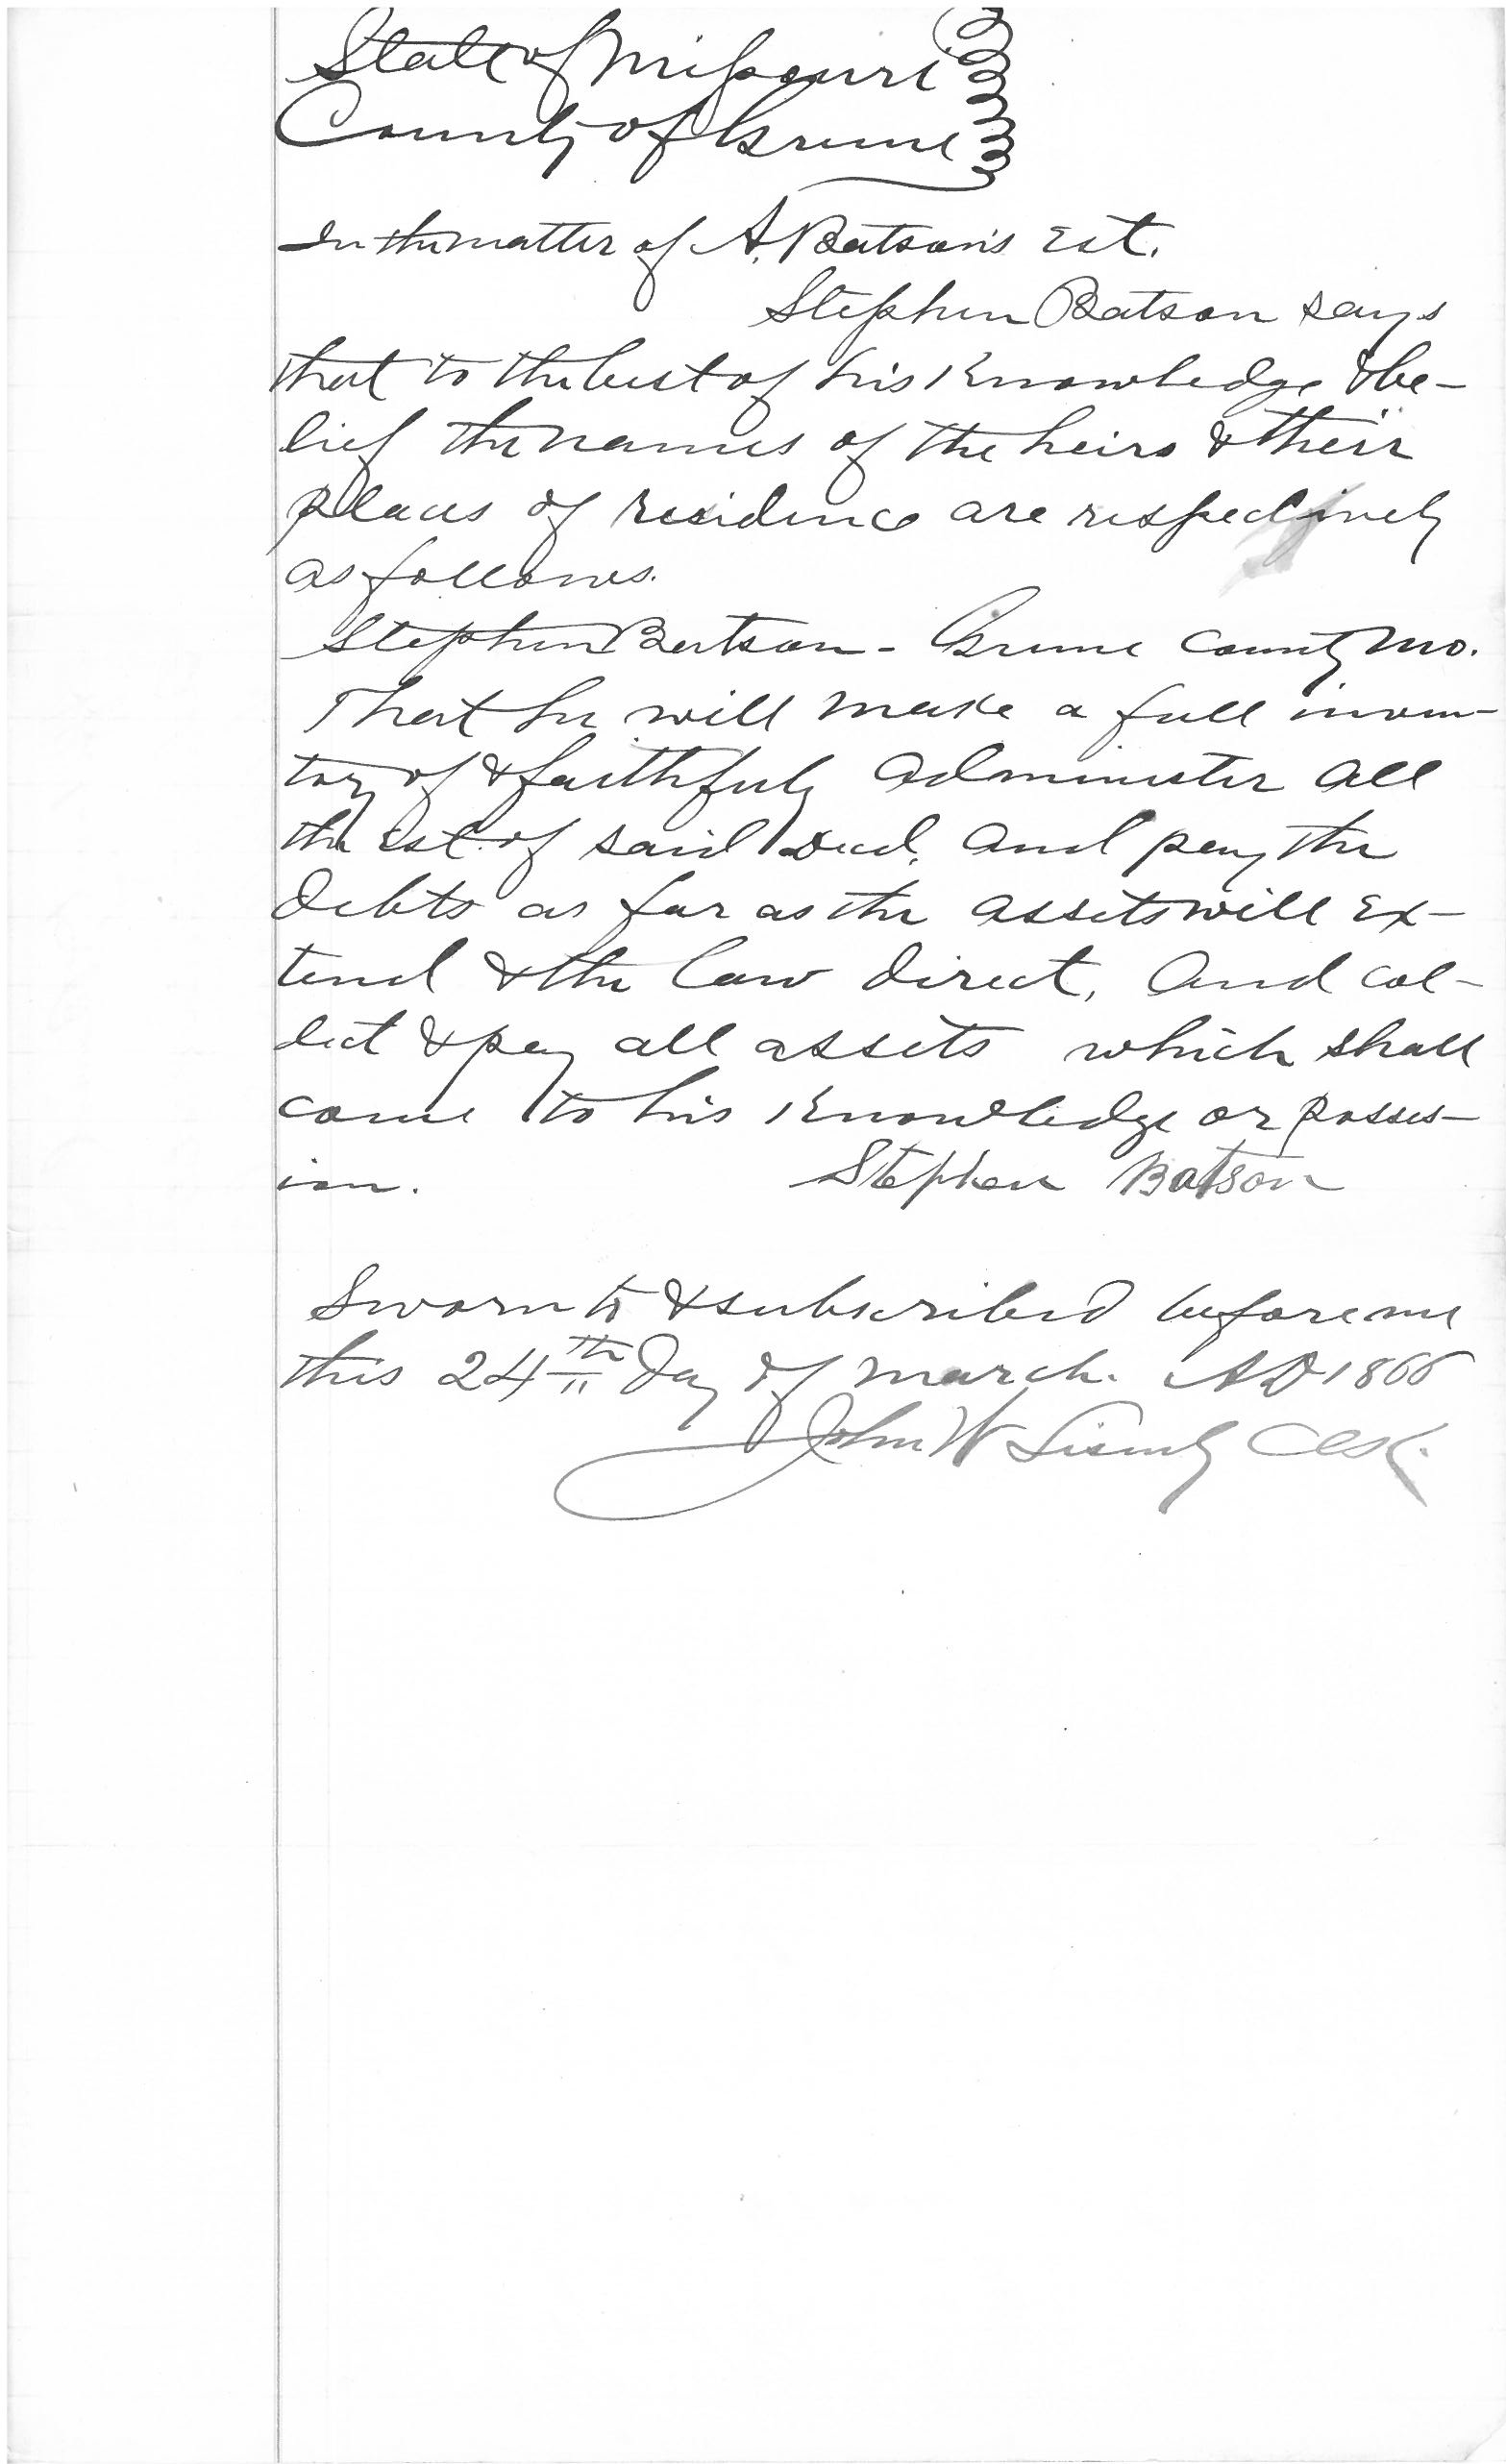 State of Missouri
County of Greene
In the matter of A. Batson's Est.
Stephen Batson says
that to the best of his Knowledge & be-
lief the names of the heirs & their
places of residence are respectively
as follows.
Stephen Batson - Greene County Mo.
That he will make a full inven-
tory of & faithfuly administer all
the est. of said Decd. and pay the
debts as far as the assets will Ex-
tend & the law direct, And col-
lect & pay all assets which shall
come to his Knowledge or posses-
ion. Stephen Batson
Sworn to & subscribed before me
this 24th Day of March. AD 1866
John W Lisenby Clk.